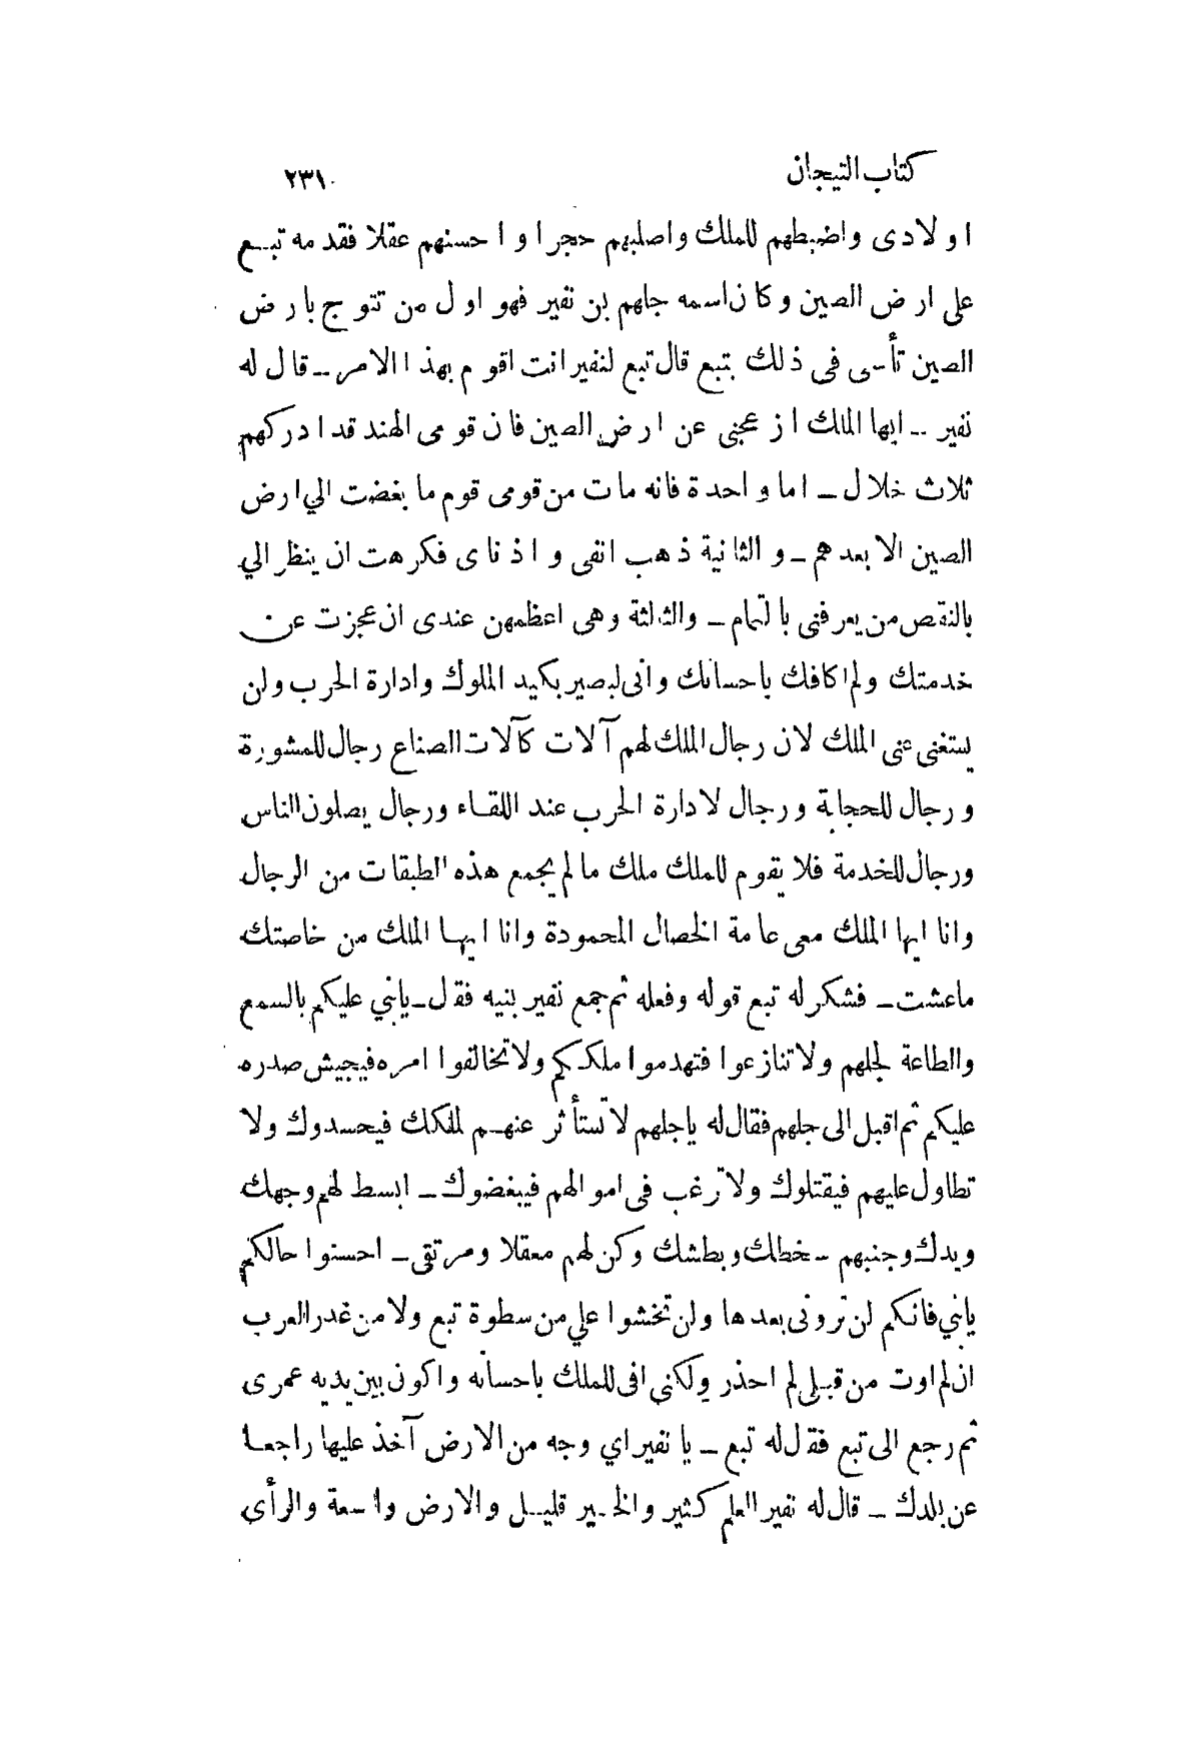 كتاب التيجان ٢٣١
اولادى واضبطهم للملك واصلبهم حجرا واحسنهم عقلا فقدمه تبع
على ارض الصين وكان اسمه جلهم بن نفير فهو اول من تتوج بارض
الصين تأسى فى ذلك بتبع قال تبع لنفير انت اقوم بهذا الامر ــ قال له
نفير ــ ايها الملك ازعجنى عن ارض الصين فان قومى الهند قد ادركهم
ثلاث خلال ــ اما واحدة فانه مات من قومى قوم ما بغضت الي ارض
الصين الا بعدهم ــ والثانية ذهب انفى واذناى فكرهت ان ينظر الي
بالنقص من يعرفنى بالتمام ــ والثالثة وهى اعظمهن عندى ان عجزت عن
خدمتك ولم اكافك باحسانك وانى لبصير بكيد الملوك وادارة الحرب ولن
يستغنى عنى الملك لان رجال الملك لهم آلات كآلات الصناع رجال للمشورة
ورجال للحجابة ورجال لادارة الحرب عند اللقاء ورجال يصلون الناس
ورجال للخدمة فلا يقوم للملك ملك ما لم يجمع هذه الطبقات من الرجال
وانا ايها الملك معى عامة الخصال المحمودة وانا ايها الملك من خاصتك
ماعشت ــ فشكر له تبع قوله وفعله ثم جمع نفير بنيه فقال ــ يابني عليكم بالسمع
والطاعة لجلهم ولا تنازعوا فتهدموا ملككم ولا تخالفوا امره فيجيش صدره
عليكم ثم اقبل الى جلهم فقال له ياجلهم لا تستأثر عنهم لملكك فيحسدوك ولا
تطاول عليهم فيقتلوك ولا ترغب فى اموالهم فيبغضوك ــ ابسط لهم وجهك
ويدك وجنبهم سخطك وبطشك وكن لهم معقلا ومرتقى ــ احسنوا حالكم
يابني فانكم لن ترونى بعدها ولن تخشوا علي من سطوة تبع ولا من غدر العرب
ان لم اوت من قبلى لم احذر ولكنى افى للملك باحسانه واكون بين يديه عمرى
ثم رجع الى تبع فقال له تبع ــ يا نفير اي وجه من الارض آخذ عليها راجعا
عن بلدك ــ قال له نفير العلم كثير والخير قليل والارض واسعة والرأى